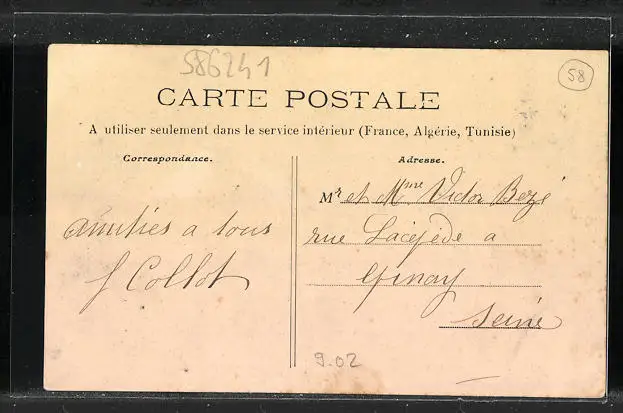 586241
58
CARTE POSTALE
A utiliser seulement dans le service intérieur (France, Algérie, Tunisie)
Correspondance.
Adresse.
Mr et Mme Victor Bezé
amitiés a tous
rue Lacépède a
J Collot
Epinay
Seine
9.02